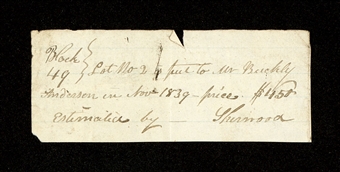 Block
49 } Lot No 2 put to Mr Buckly
Anderson in Novr 1839 - price - $1150
Estimated by — Sherwood